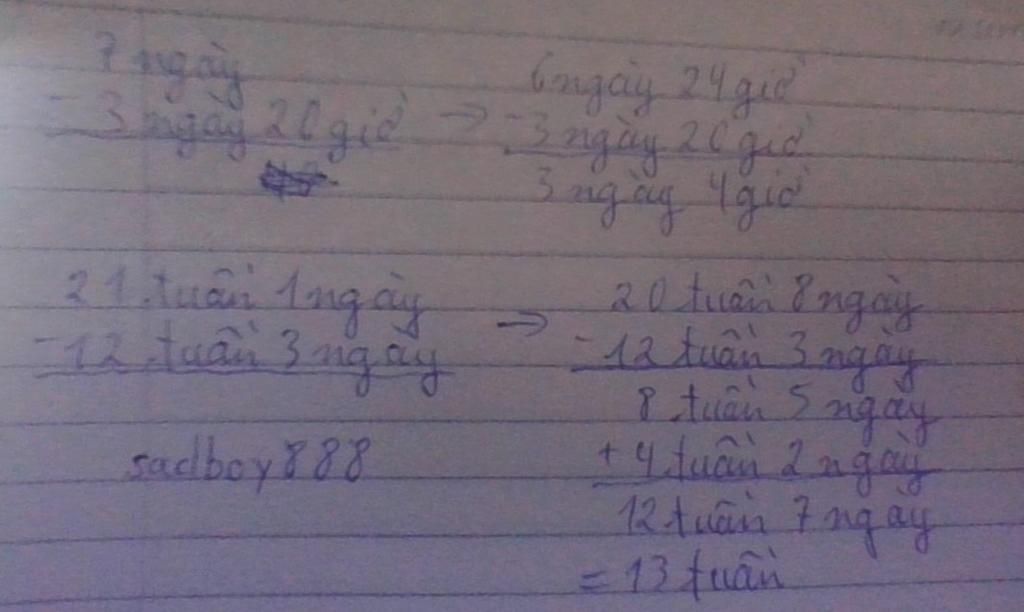 7 ngày
- 3 ngày 20 giờ →
6 ngày 24 giờ
- 3 ngày 20 giờ
3 ngày 4 giờ
21 tuần 1 ngày
- 12 tuần 3 ngày →
20 tuần 8 ngày
- 12 tuần 3 ngày
8 tuần 5 ngày
+ 4 tuần 2 ngày
12 tuần 7 ngày
= 13 tuần
sadboy888